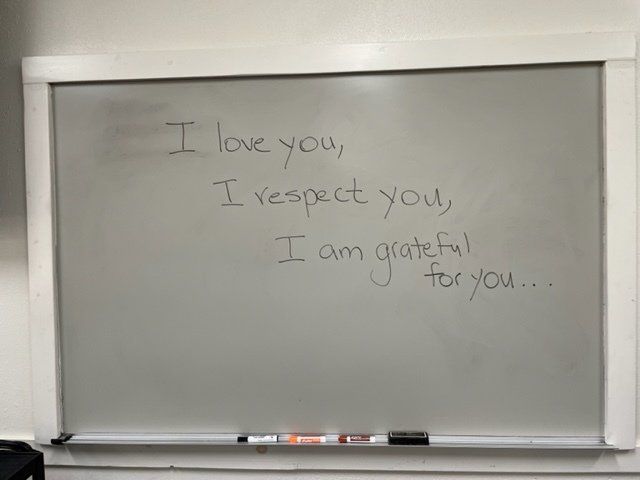 I love you,
I respect you,
I am grateful
for you...